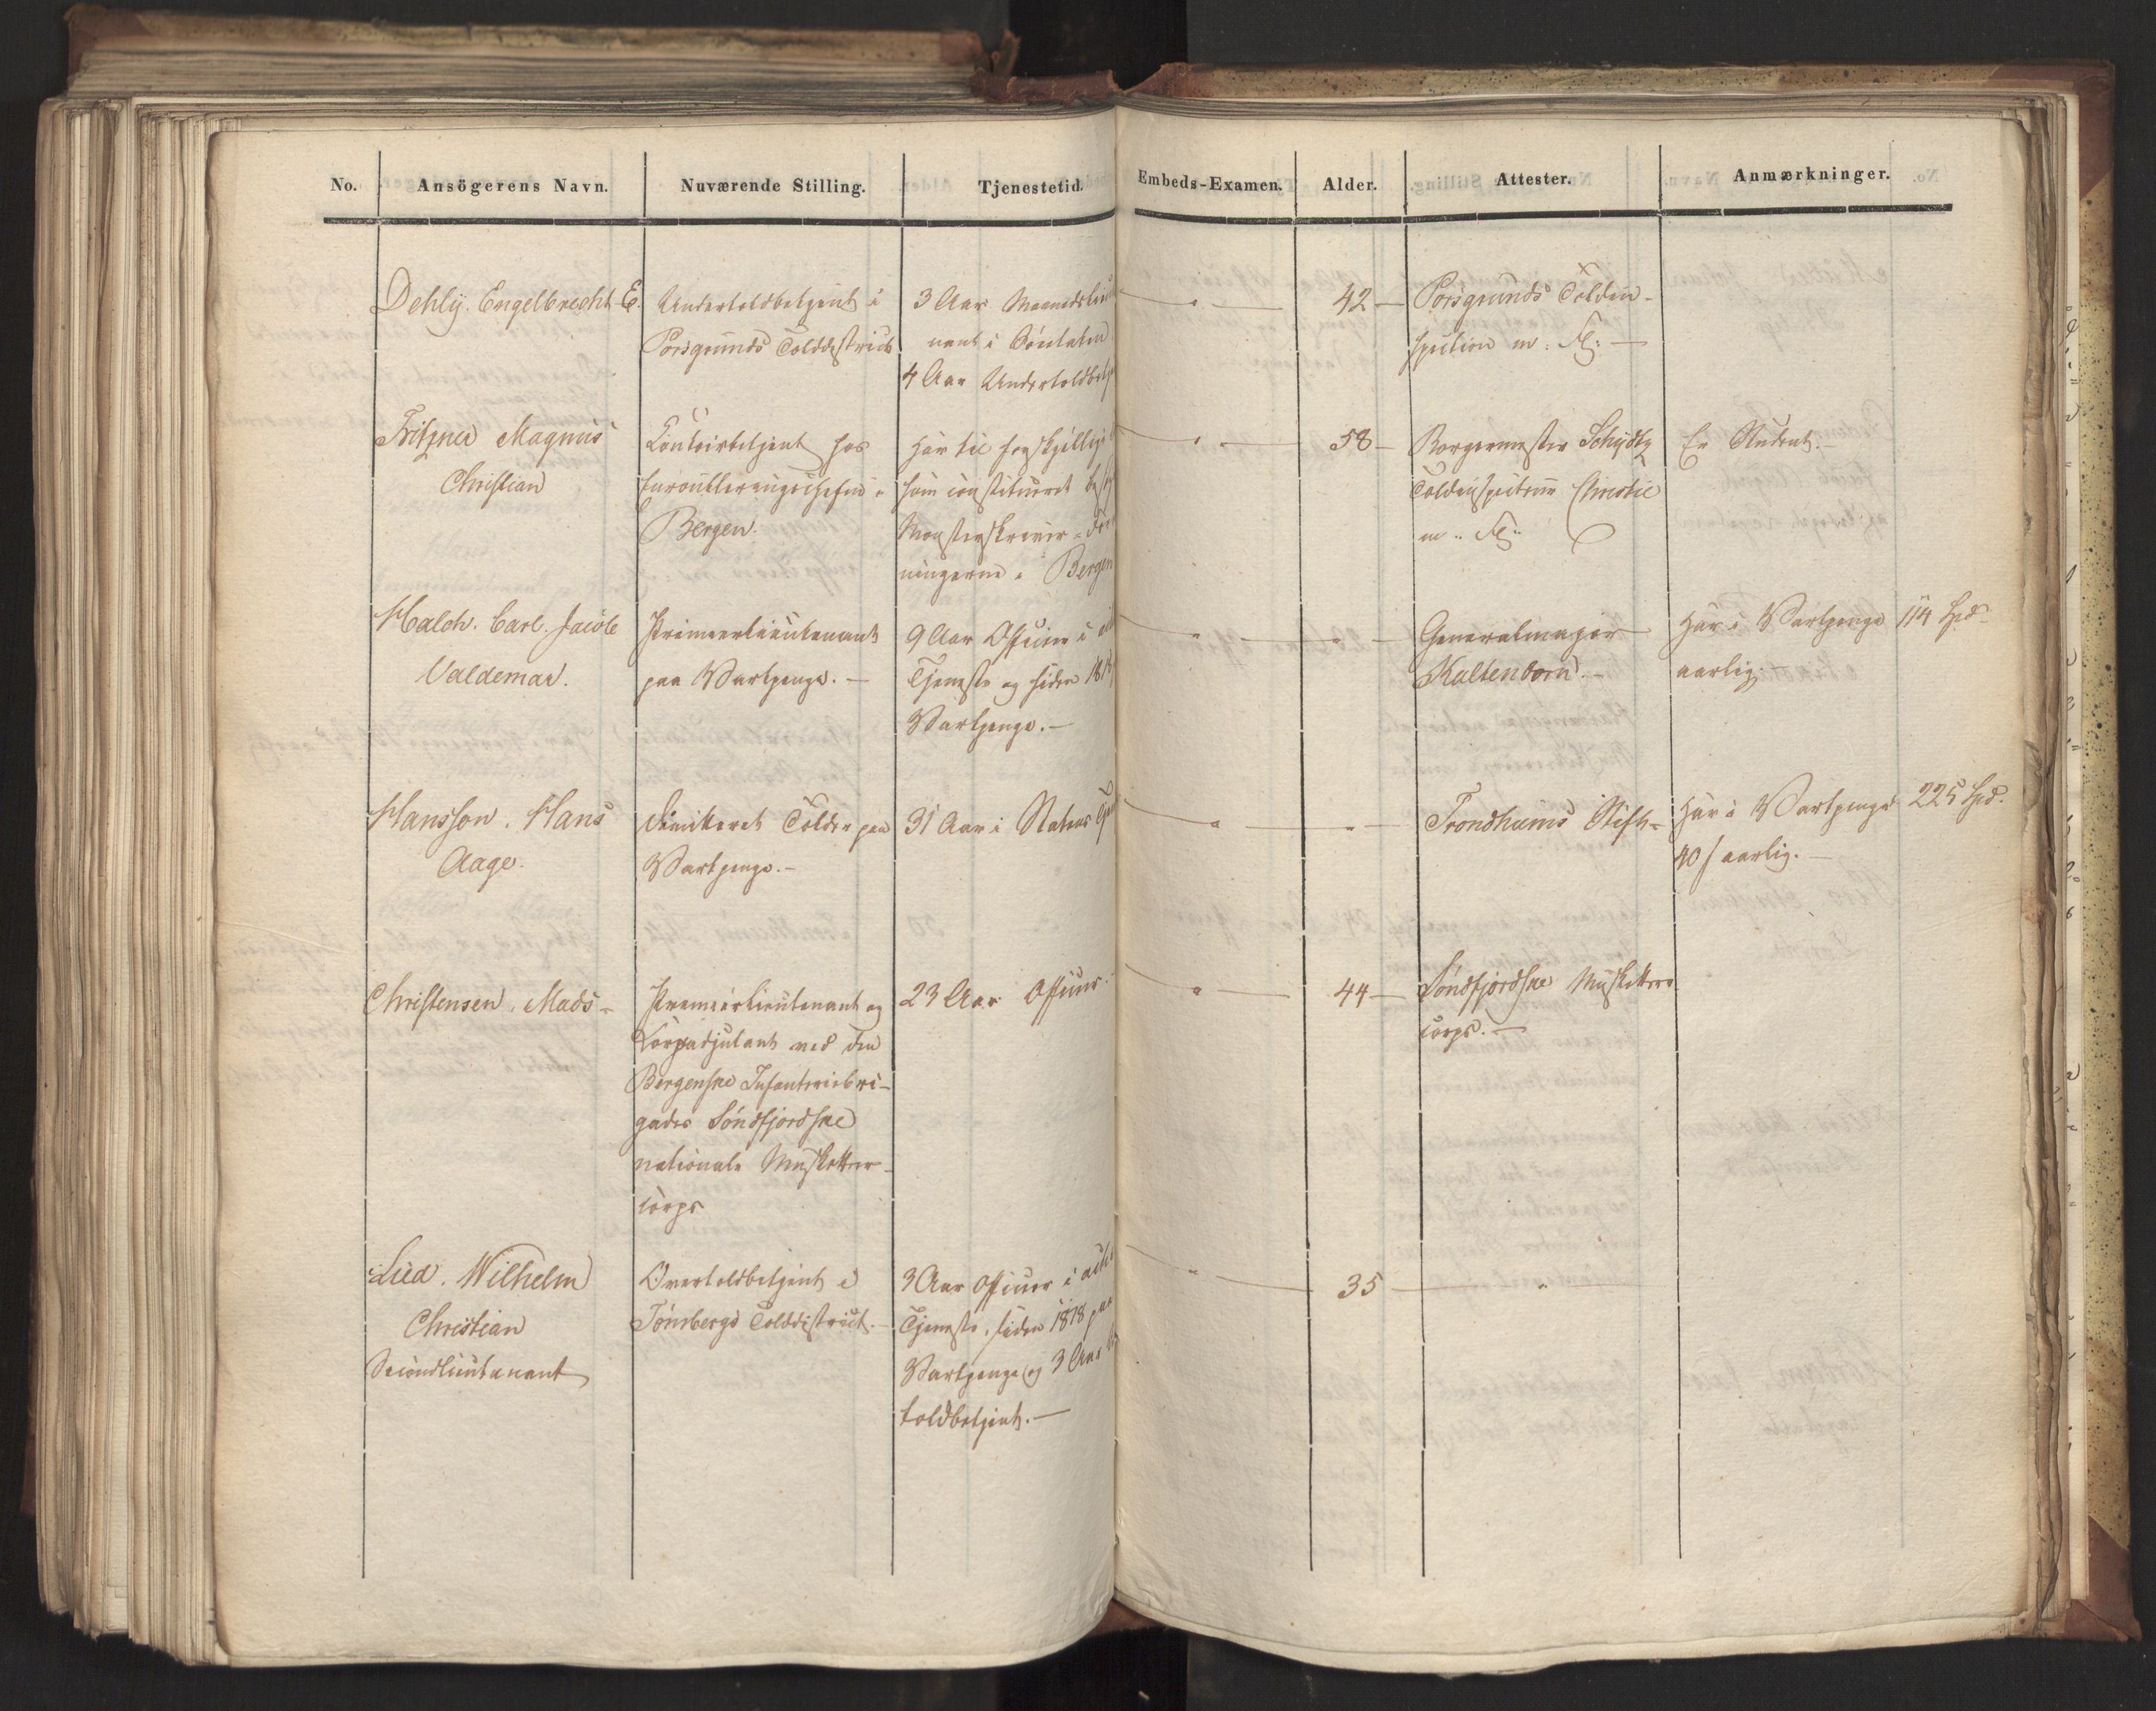 No. Ansögerens Navn. Nuværende Stilling. Tjenestetid. Embeds-Examen. Alder. Attester. Anmærkninger.
Dehly. Engelbrecht E.
Undertoldbetjent i
Porsgrunds Tolddistrict
3 Aar Maanedslieut
nant i Söeetaten
4 Aar Undertoldbetj
"
42 —
Porsgrunds Toldin-
spection m: fl: —
Fritzner Magnus
Christian
Contoirbetjent hos
Enroulleringschefen i
Bergen.
Har til forskjellige
som constitueret best
Mönsterskriver-For
ningerne i Bergen
"
58 —
Borgermester Schydtz
Toldinspecteur Christie
m: fl:
Er Student. —
Balch. Carl. Jacob
Valdemar.
Premierlieutenant
paa Vartpenge. —
9 Aar Officier i
Tjeneste og siden 181
Vartpenge. —
"
"
Generalmajor
Kaltenborn. —
Har i Vartpenge 114 Spd
aarlig. —
Hansson. Hans
Aage.
Dimitteret Tolder paa
Vartpenge. —
31 Aar i Statens Tje
"
"
Trondhiems Stift-
Har i Vartpenge 225 Spd.
40 s aarlig. —
Christensen. Mads -
Premierlieutenant og
Corpsadjutant ved den
Bergenske Infanteribri-
gades Söndfjordske
nationale Musketeer-
corps
23 Aar Officier.
"
44 —
Söndfjordske Musketeer
corps. —
Lied. Wilhelm
Christian
Secondlieutenant
Overtoldbetjent i
Tönsbergs Tolddistrict. —
3 Aar Officier i active
Tjeneste, siden 1818 paa
Vartpenge og 3 Aar
toldbetjent. —
"
35
"